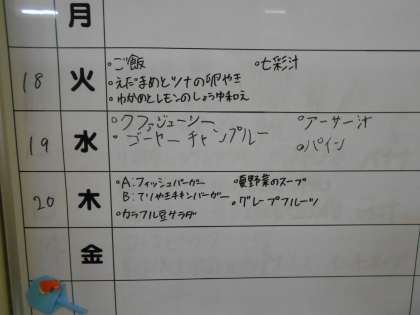 月
18 火 ・ご飯 ・七彩汁
・えだまめとツナの卵やき
・わかめとレモンのしょうゆ和え
19 水 ・クファジューシー ・アーサー汁
・ゴーヤーチャンプルー ・パイン
20 木 ・A:フィッシュバーガー ・夏野菜のスープ
B:てりやきチキンバーガー ・グレープフルーツ
・カラフル豆サラダ
金